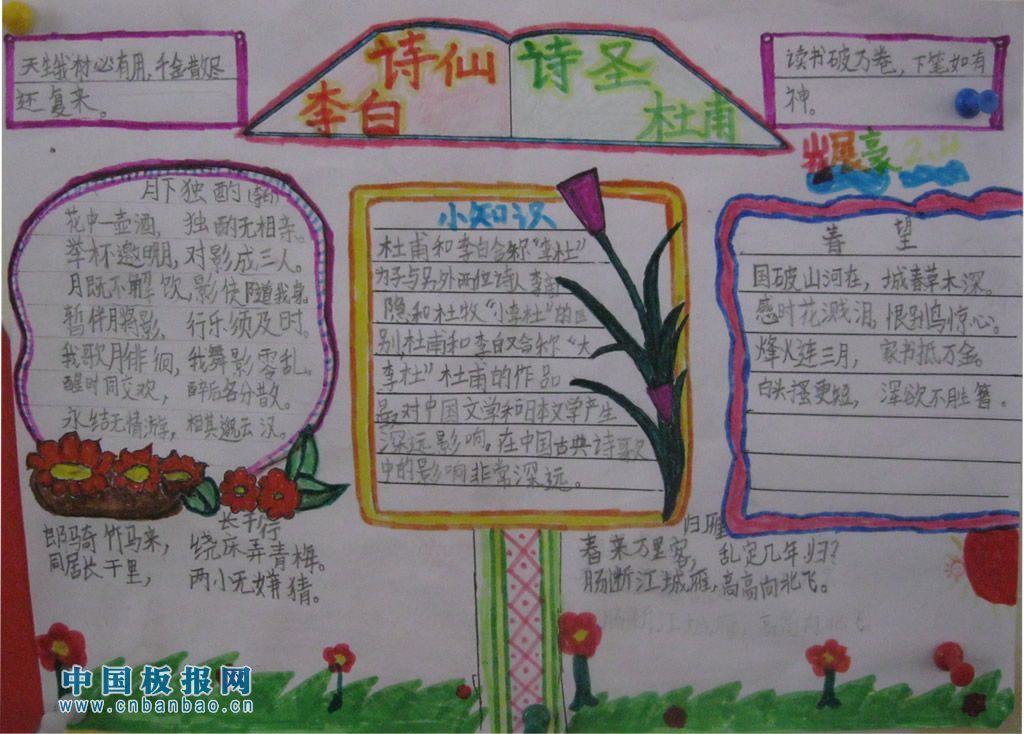 天生我材必有用,千金散尽
还复来。
诗仙
李白
诗圣
杜甫
读书破万卷,下笔如有
神。
2.4
月下独酌(李白)
花中一壶酒, 独酌无相亲。
举杯邀明月,对影成三人。
月既不解饮,影徒随我身
暂伴月将影, 行乐须及时。
我歌月徘徊,我舞影零乱。
醒时同交欢, 醉后各分散。
永结无情游, 相其邈云汉。
小知识
杜甫和李白合称“李杜”
为了与另外两位诗人李商
隐和杜牧“小李杜”的区
别,杜甫和李白又合称“大
李杜”杜甫的作品
对中国文学和日本文学产生
深远影响。在中国古典诗歌
中的影响非常深远。
春望
国破山河在, 城春草木深。
感时花溅泪,恨别鸟惊心。
烽火连三月, 家书抵万金。
白头搔更短, 浑欲不胜簪。
长干行
郎骑竹马来, 绕床弄青梅。
同居长干里, 两小无嫌猜。
归雁
春来万里客, 乱定几年归?
肠断江城雁,高高向北飞。
中国板报网
www.cnbanbao.cn